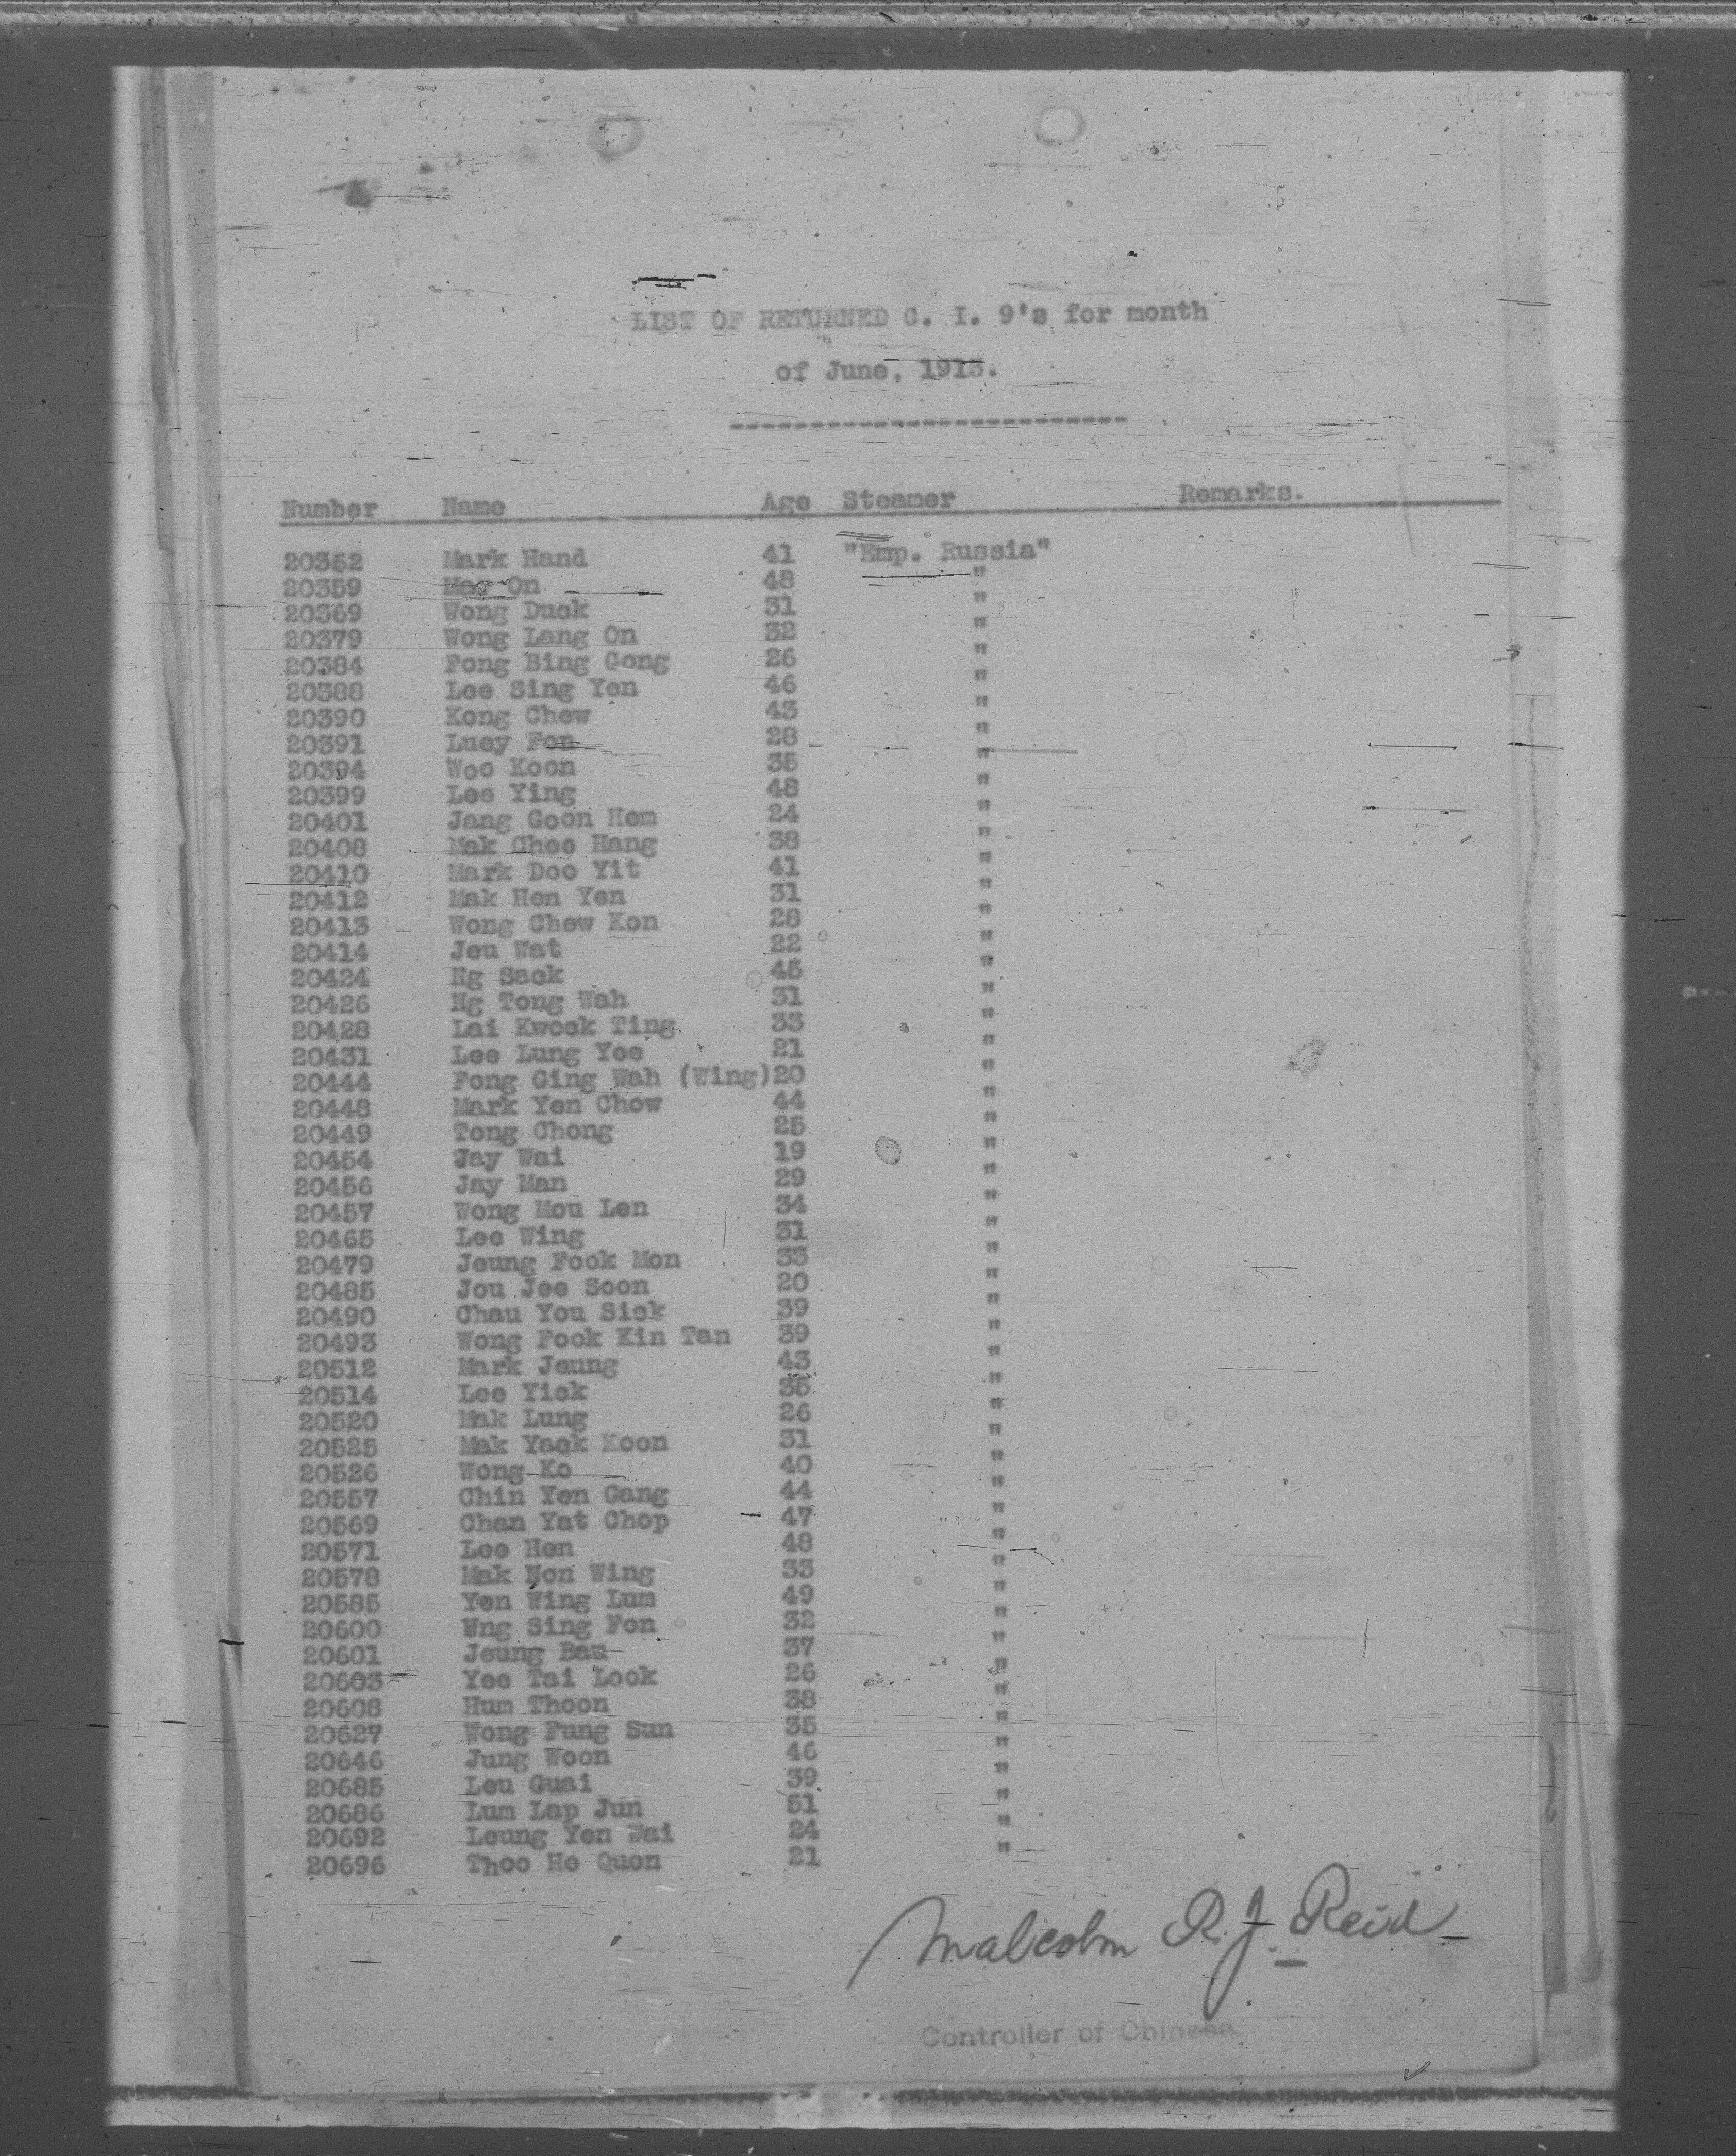 LIST OF RETURNED C. I. 9's for month
of June, 1913.
Number Name Age Steamer Remarks.
20352 Mark Hand 41 "Emp. Russia"
20359 On 48 "
20369 Wong Duck 31 "
20379 Wong Lang On 32 "
20384 Fong Bing Gong 26 "
20388 Lee Sing Yen 46 "
20390 Kong Chew 43 "
20391 Lucy Fon 28 "
20394 Woo Koon 35 "
20399 Lee Ying 48 "
20401 Jang Goon Hem 24 "
20408 Mak Chee Hang 38 "
20410 Mark Doo Yit 41 "
20412 Mak Hen Yen 31 "
20413 Wong Chew Kon 28 "
20414 Jeu Wat 22 "
20424 Ng Sack 45 "
20426 Ng Tong Wah 31 "
20428 Lai Kwock Ting 33 "
20431 Lee Lung Yee 21 "
20444 Fong Ging Wah (Wing) 20 "
20448 Mark Yen Chow 44 "
20449 Tong Chong 25 "
20454 Jay Wai 19 "
20456 Jay Man 29 "
20457 Wong Mou Len 34 "
20465 Lee Wing 31 "
20479 Jeung Fook Mon 33 "
20485 Jou Jee Soon 20 "
20490 Chau You Sick 39 "
20493 Wong Fook Kin Tan 39 "
20512 Mark Jeung 43 "
20514 Lee Yick 35 "
20520 Mak Lung 26 "
20525 Mak Yack Koon 31 "
20526 Wong Ko 40 "
20557 Chin Yen Gang 44 "
20569 Chan Yat Chop 47 "
20571 Lee Hen 48 "
20578 Mak Non Wing 33 "
20585 Yen Wing Lum 49 "
20600 Ung Sing Fon 32 "
20601 Jeung Bau 37 "
20603 Yee Tai Look 26 "
20608 Hum Thoon 38 "
20627 Wong Fung Sun 35 "
20646 Jung Woon 46 "
20685 Leu Guai 39 "
20686 Lum Lap Jun 51 "
20692 Leung Yen Wai 24 "
20696 Thoo He Quon 21 "
Malcolm R. J. Reid
Controller of Chinese